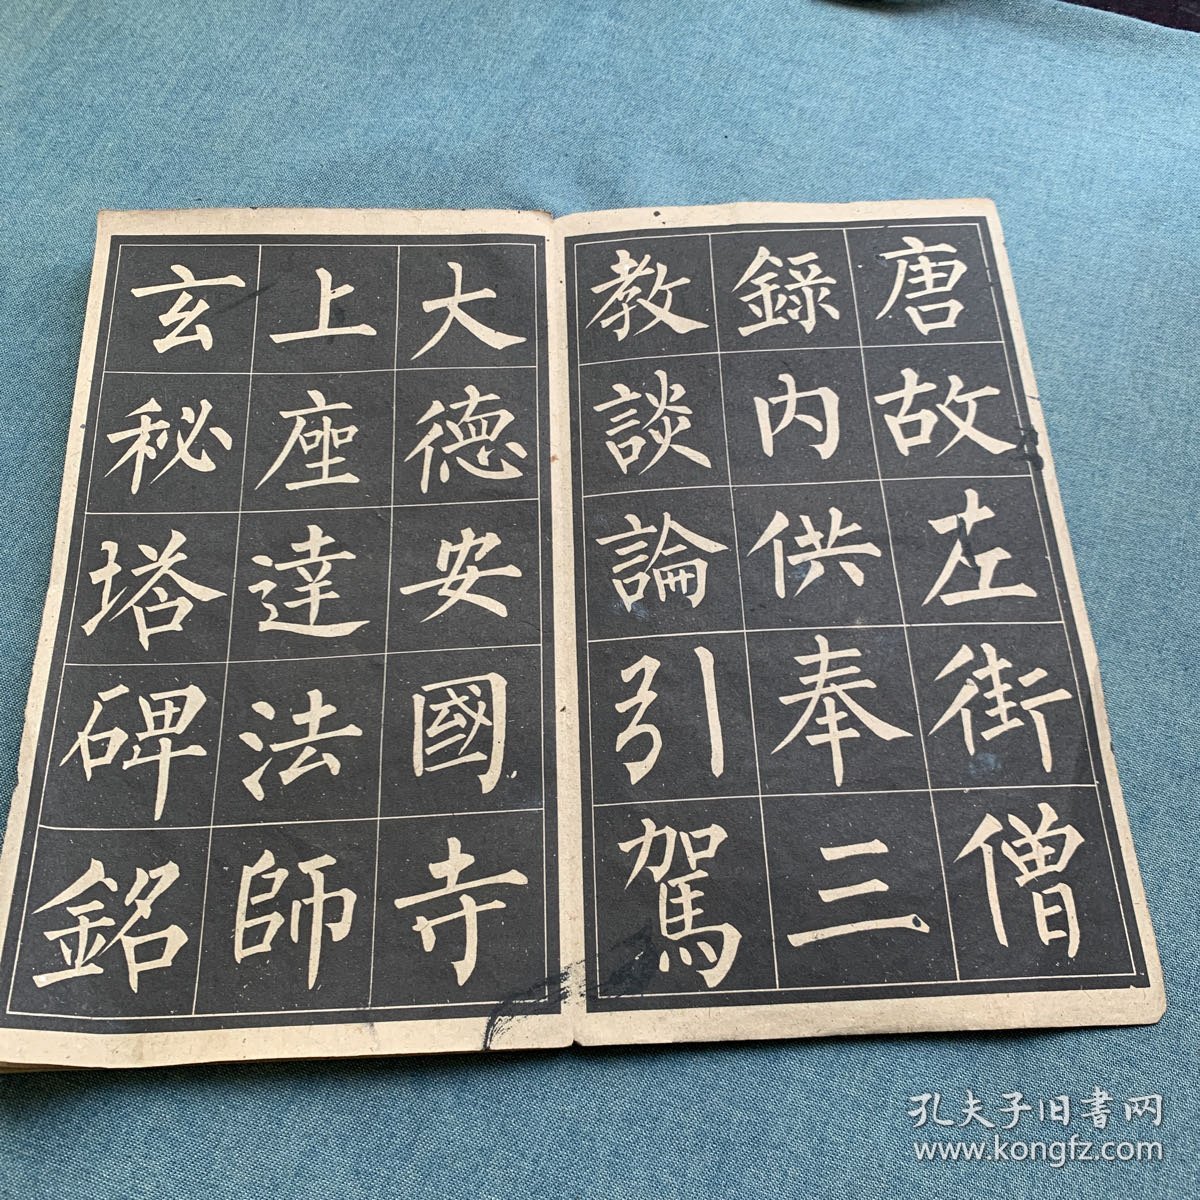 唐故左街僧
錄内供奉三
教談論引駕
大德安國寺
上座達法師
玄秘塔碑銘
孔夫子旧書网
www.kongfz.com